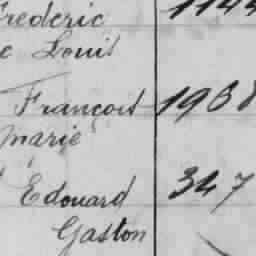 Frederic 1144
c Louis
François 1968
Marie
Edouard 347
Gaston